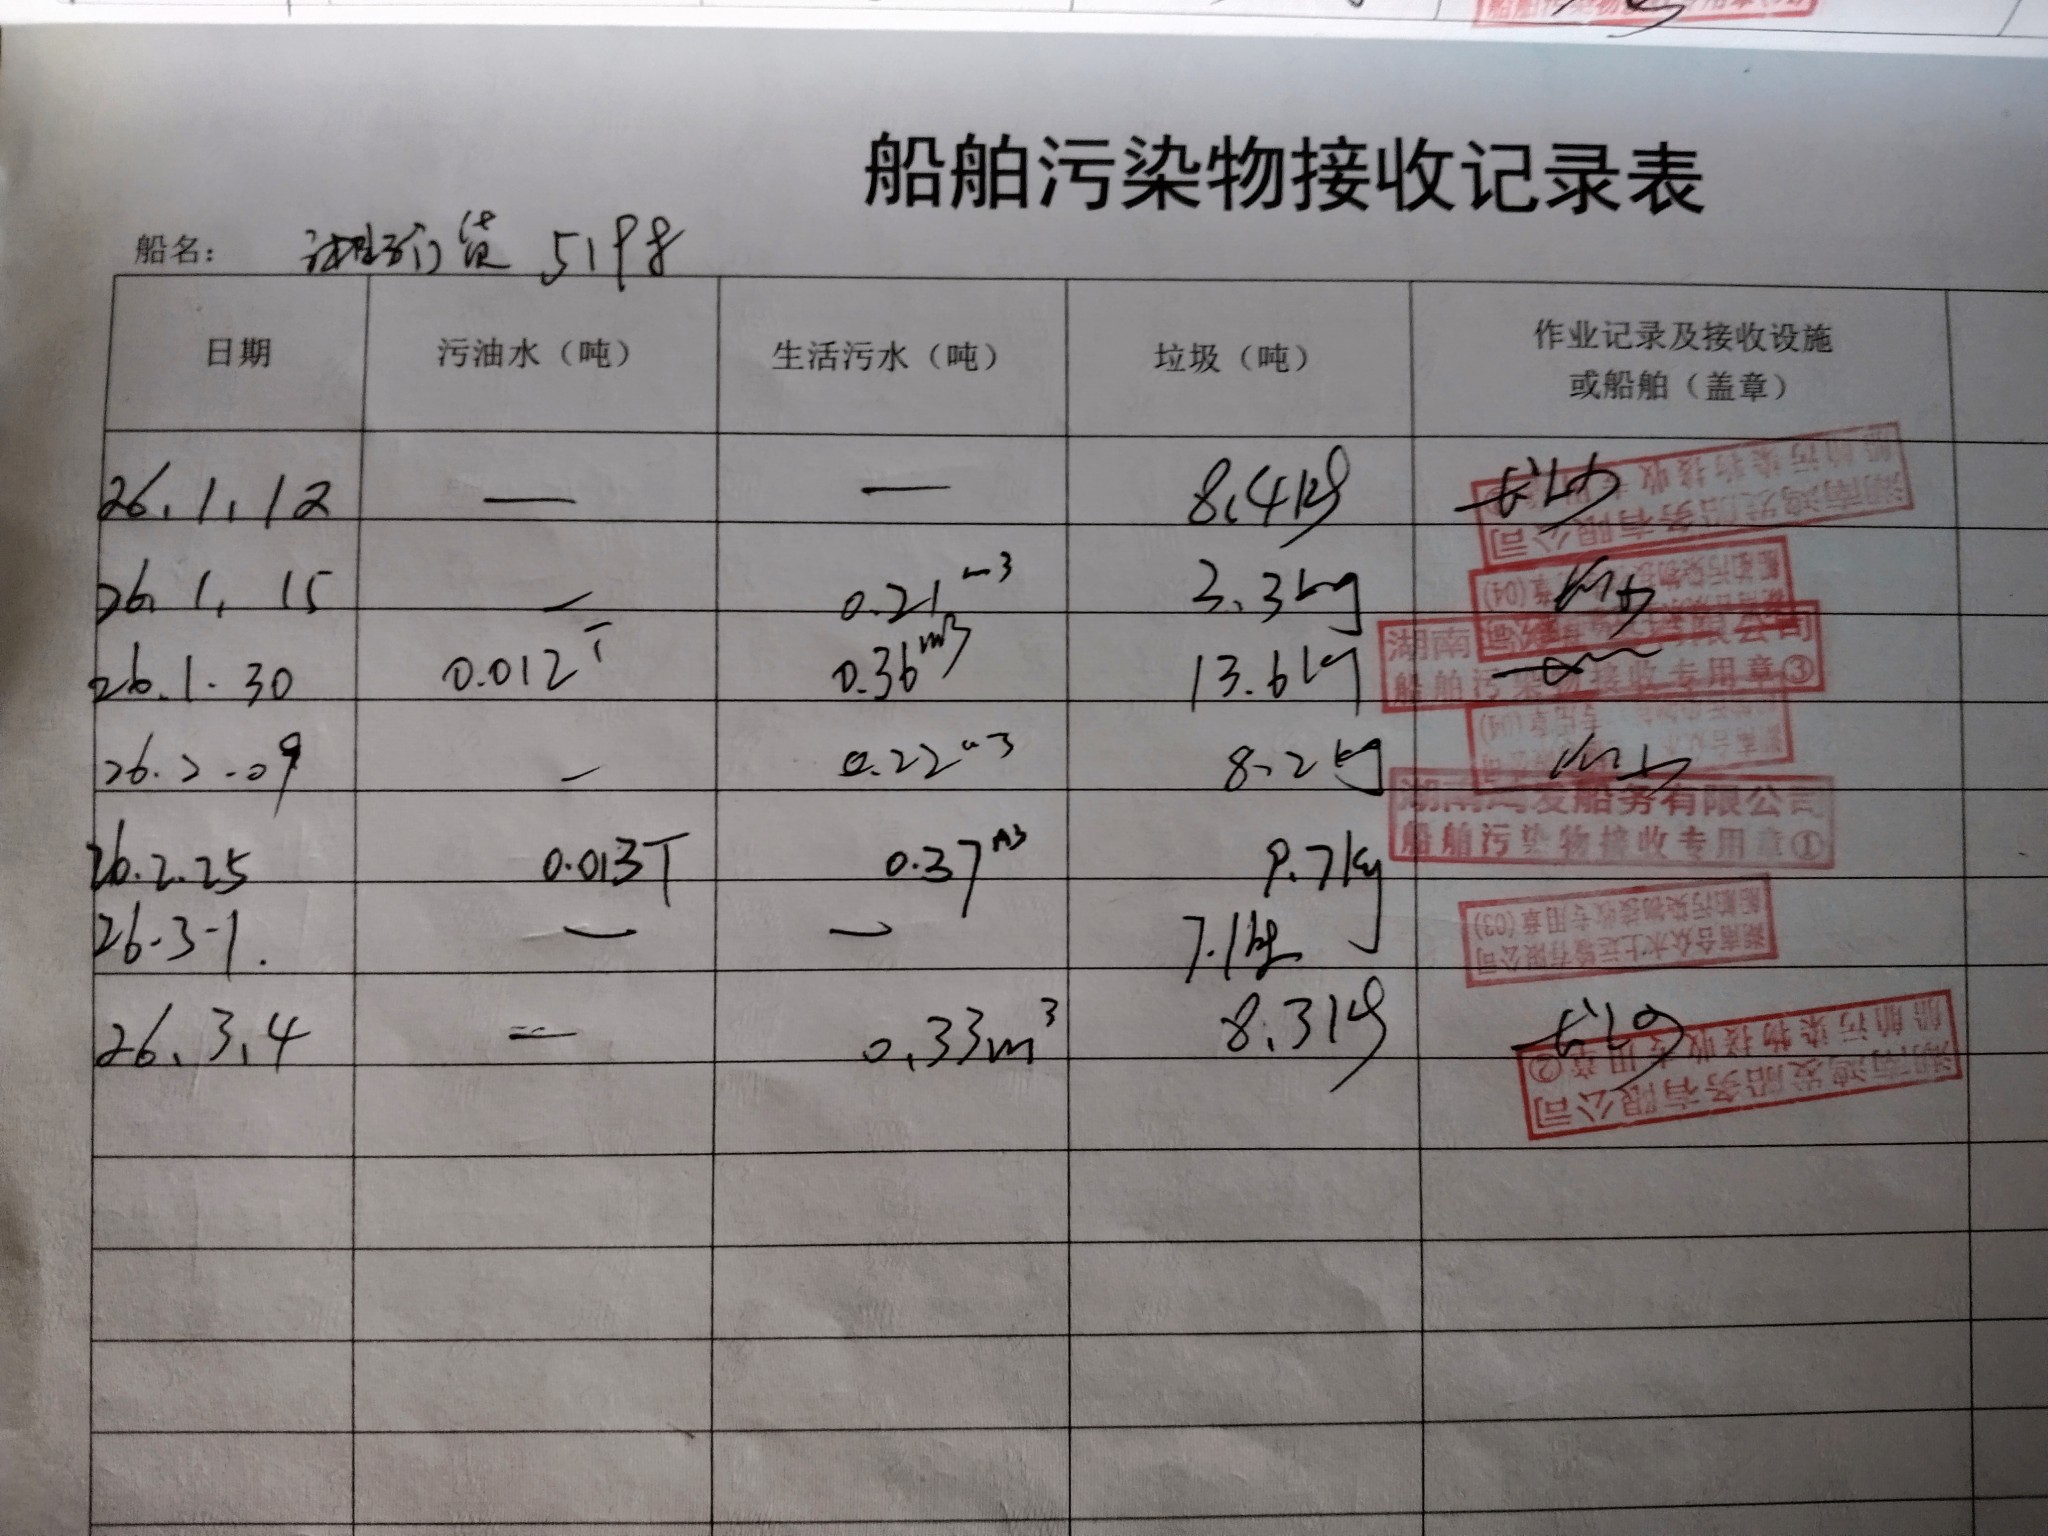 船舶污染物接收记录表
船名: 货 5198
日期 污油水（吨） 生活污水（吨） 垃圾（吨） 作业记录及接收设施
或船舶（盖章）
26.1.12 — — 8.4kg
湖南鸿发船务有限公司
船舶污染物接收专用章
26.1.15 — 0.21m3 3.3kg
船舶污染物接收专用章(04)
26.1.30 0.012T 0.36m3 13.6kg
湖南 有限公司
船舶污染物接收专用章③
26.2.09 — 0.22m3 8.2kg
专用章(04)
26.2.25 0.013T 0.37m3 9.7kg
湖南鸿发船务有限公司
船舶污染物接收专用章①
26.3-1. — — 7.1kg
湖南合众水上运输有限公司
船舶污染物接收专用章(03)
26.3.4 — 0.33m3 8.3kg
湖南鸿发船务有限公司
船舶污染物接收专用章②